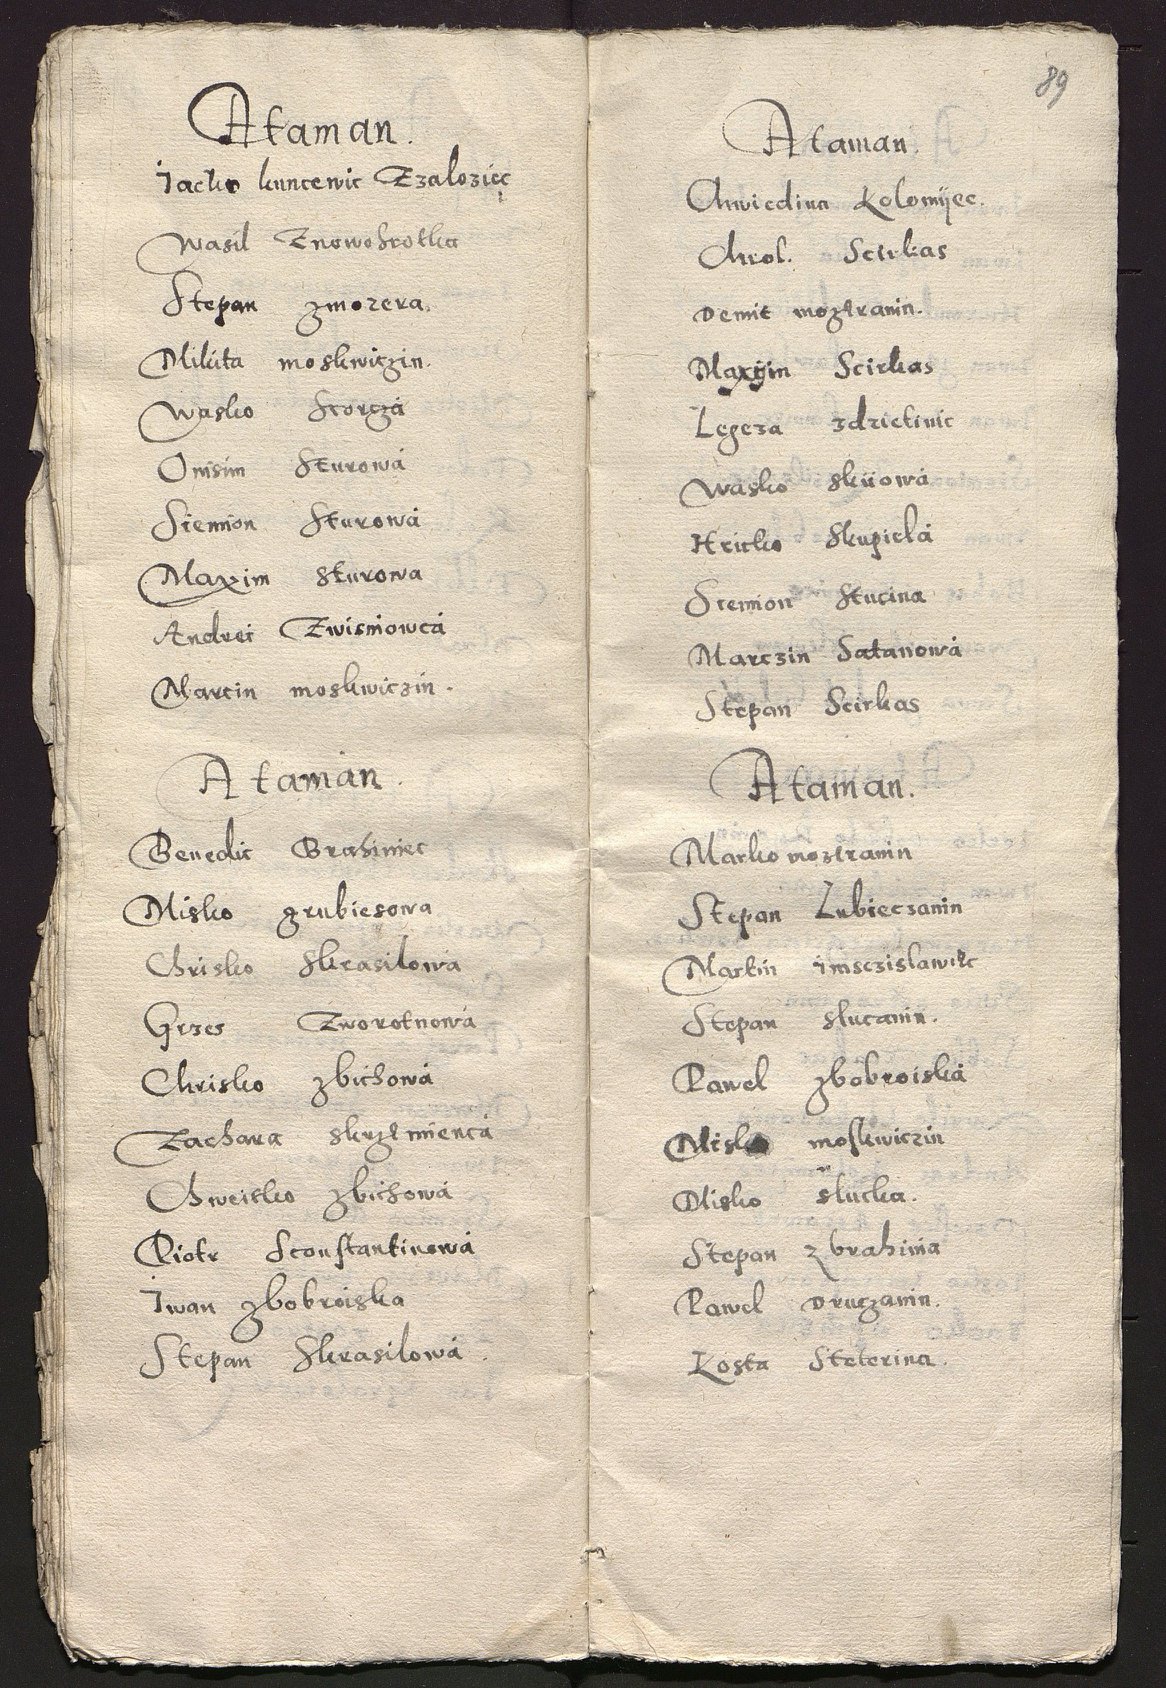 Ataman.
Jacko kuncewic Zzalozięc
Wasil Znowohrotka
Stepan zmozera.
Mikita moskwiczin.
Wasko Storczá
Onisim Sturowá
Siemion Sturowá
Maxim Sturowa
Andrei Zwisniowcá
Marcin moskwiczin.
Ataman.
Benedic Brahiniec
Misko grubiesowa
Chrisko Skrasilowa
Grzes Zworotnowá
Chrisko zbichowá
Zachara skrzemiencá
Chweitko zbichowá
Piotr Sconstantinowá
Iwan zbobroiska
Stepan Skrasilowá.
89
Ataman.
Chwiedina Kolomijec.
Chrol. Scirkas
Demit mozĕranin.
Maxijm Scirkas
Legcza zdzietinic
Wasko skiiowá
Hricko Skupielá
Siemion Stucina
Marczin Satanowá
Stepan Scirkas
Ataman.
Marko mozĕranin
Stepan Lubieczanin
Martin imsczislawic
Stepan slucanin.
Pawel zbobroiská
Misko moskwiczin
Misko slucka.
Stepan zbrahinia
Pawel Druczanin.
Kosta Steterina.